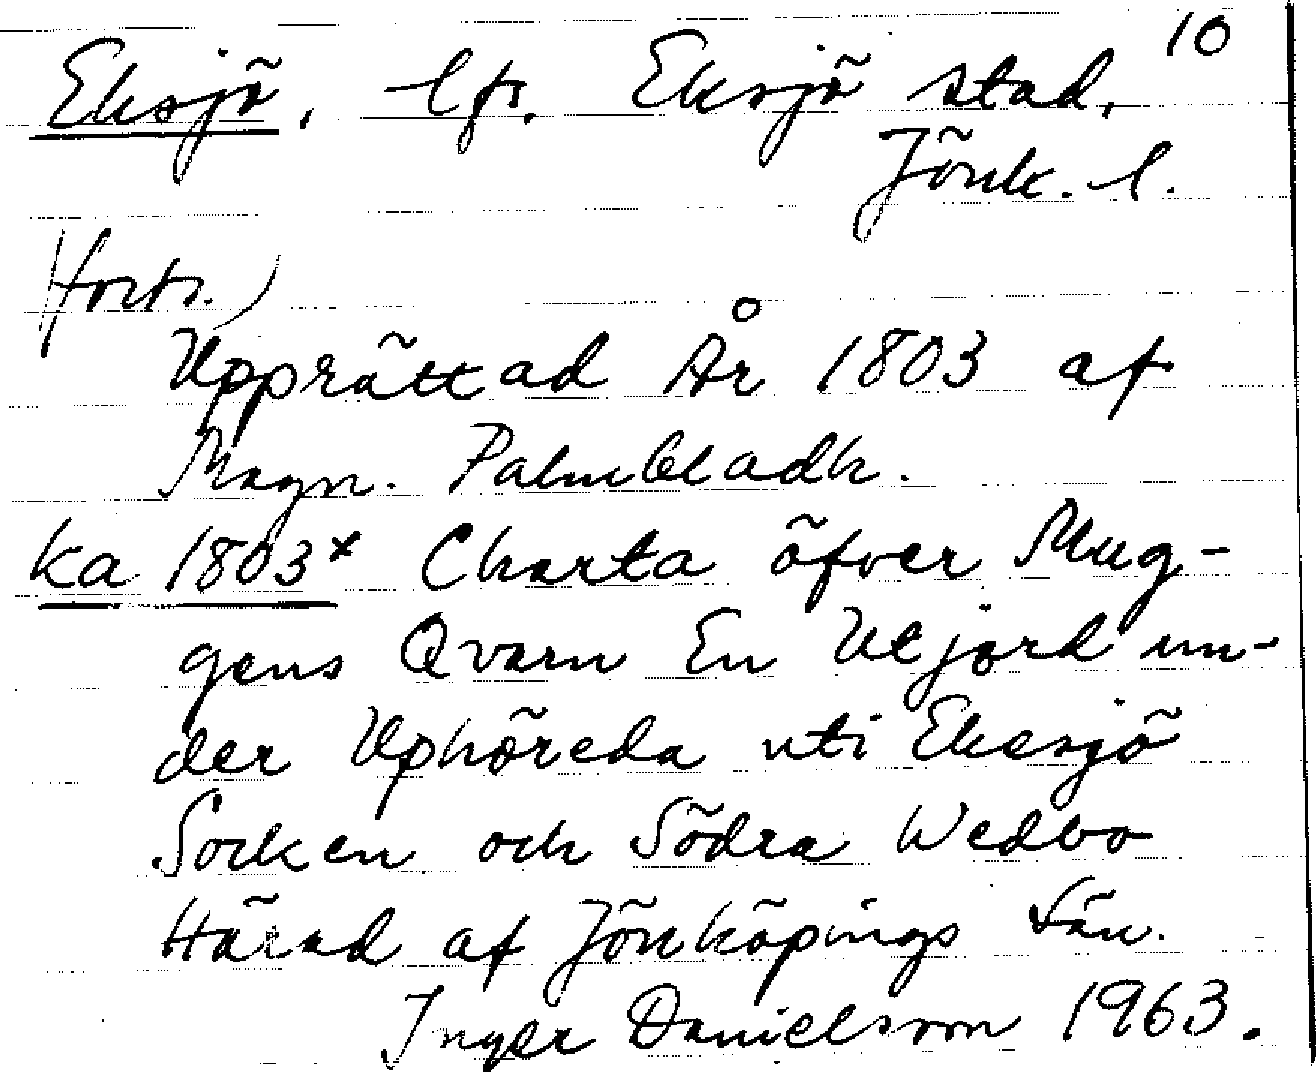 10
Eksjö, lfs. Eksjö stad,
Jönk. l.
(forts.)
Upprättad År 1803 af
Magn. Palmbladh.
ka 1803* Charta öfver Mug-
gens Qvarn En Utjord un-
der Uphöreda uti Ekesjö
Socken och Södra Wedbo
Härad af Jönköpings Län.
Inger Danielsson 1963.